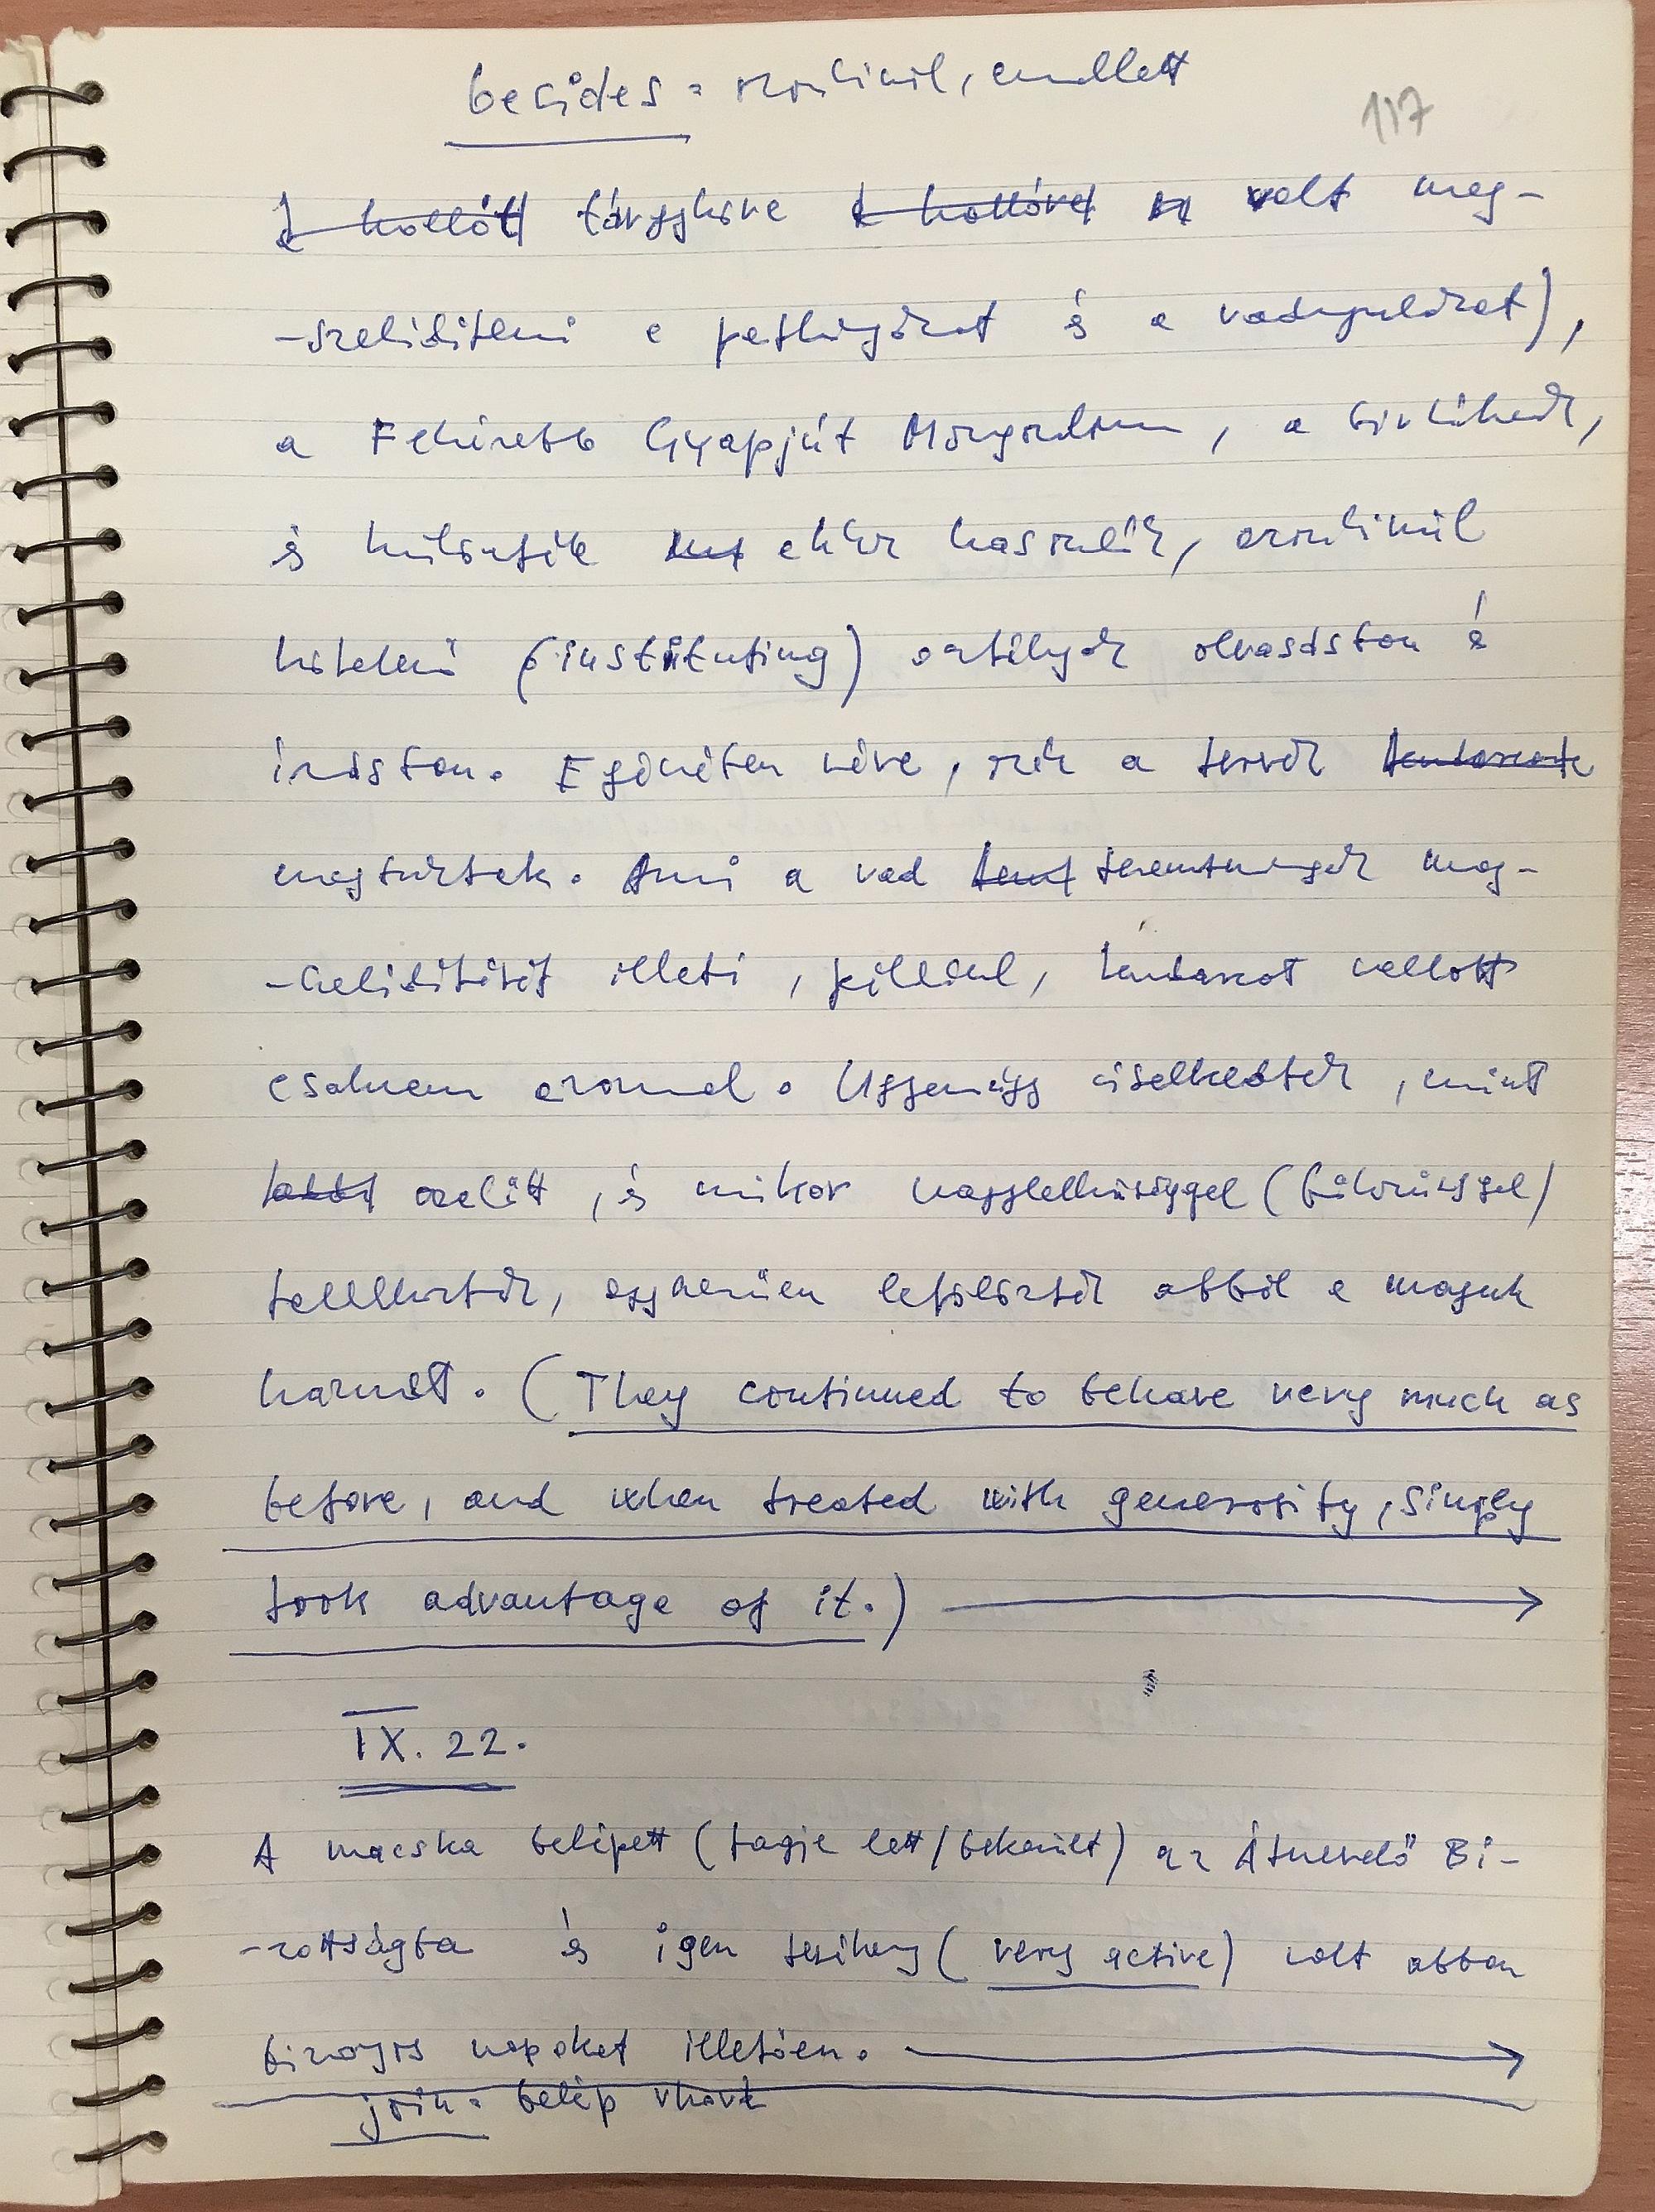 besides = azonkívül, emellett
117
kellett tárgyköre kellővel volt meg-
-szelidíteni a patkányokat és a vadnyulakat),
a Fehérebb Gyapjút Mozgalom, a birkáknak,
és különféle ehhez hasonlók, azonkívül
kötelező (instituting) osztályok olvasásban és
írásban. Egészében véve, ezek a tervek
megbuktak. Ami a vad teremtmények meg-
-szelidítését illeti, például, kudarcot vallott
csaknem azonnal. Ugyanúgy viselkedtek, mint
azelőtt, és mikor nagylelkűséggel (bőkezűséggel)
találkoztak, egyszerűen lefölözték abból a maguk
hasznát. (They continued to behave very much as
before, and when treated with generosity, simply
took advantage of it.)
IX. 22.
A macska belépett (tagja lett/bekerült) az Átnevelő Bi-
-zottságba és igen tevékeny (very active) volt abban
bizonyos napokat illetően.
join = belép vhová